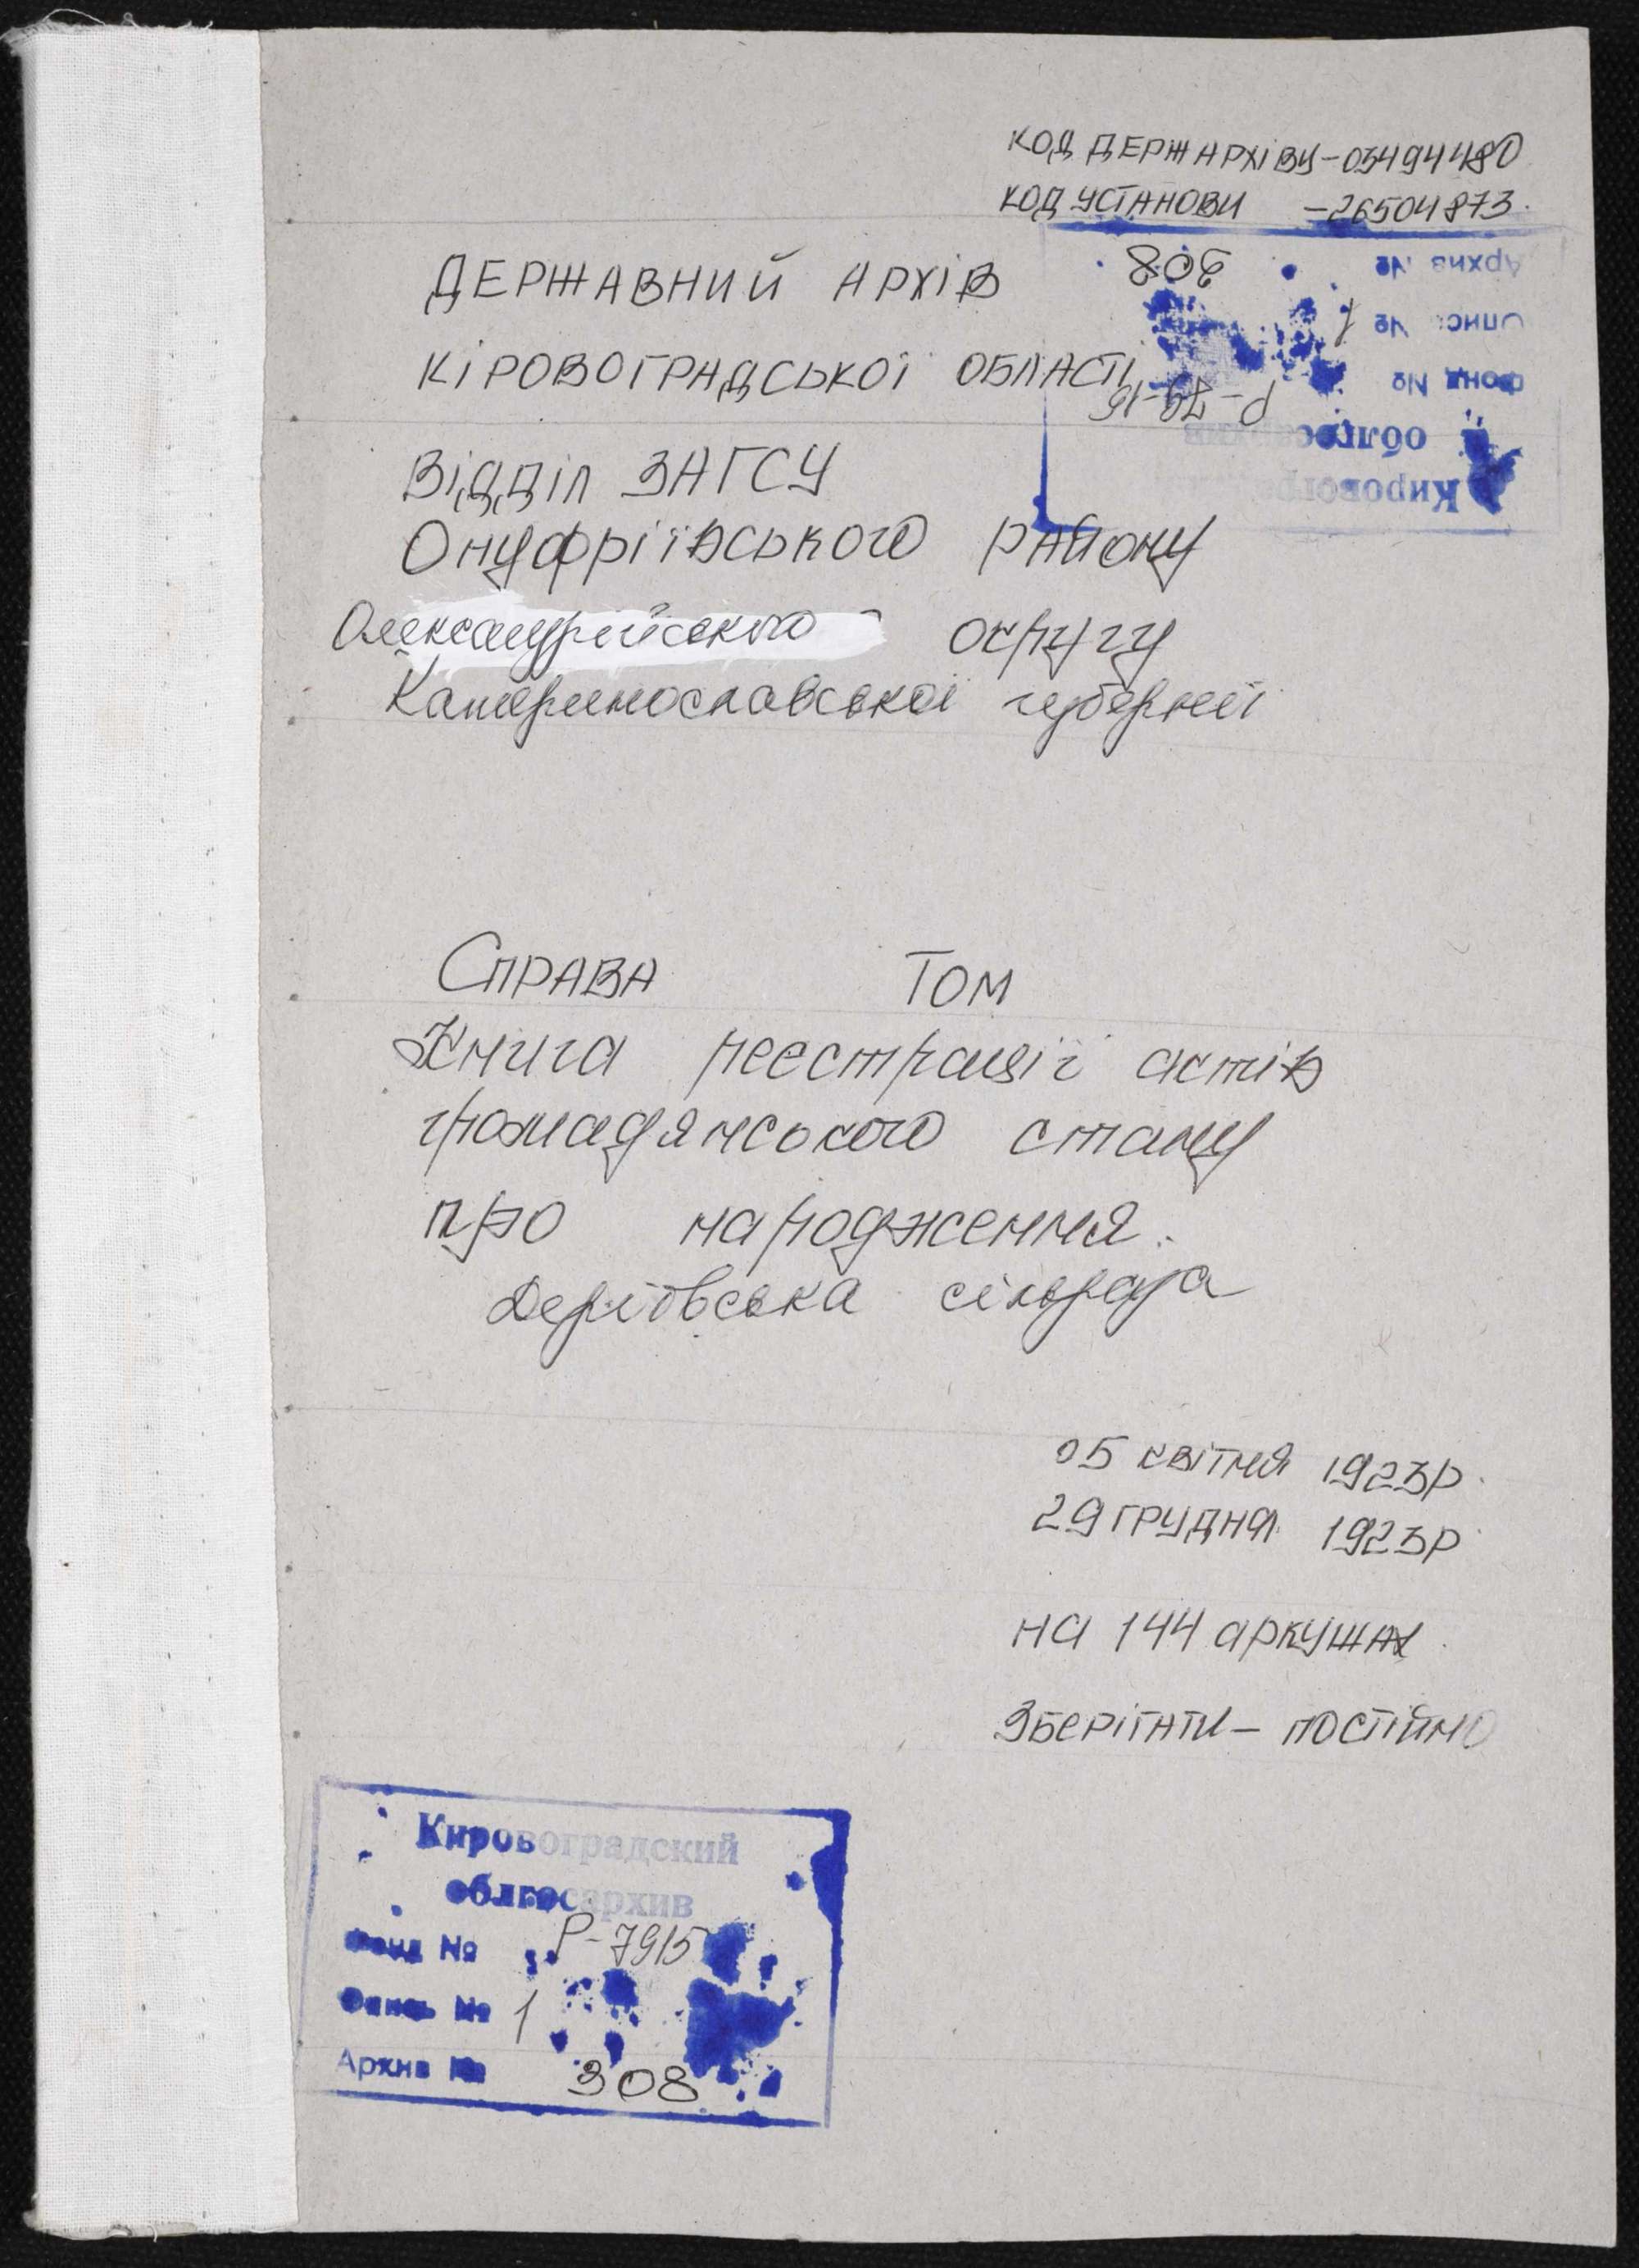 КОД ДЕРЖАРХІВУ - 03494480
КОД УСТАНОВИ - 26504873.
Архив № 308
Опись № 1
Фонд № Р-7915
облгосархив
Кировогр
ДЕРЖАВНИЙ АРХІВ
КІРОВОГРАДСЬКОЇ ОБЛАСТІ
ВІДДІЛ ЗАГСУ
Онуфріївського району
Олександрійського округу
Катеринославської губернії
СПРАВА ТОМ
Книга реєстрації актів
громадянського стану
про народження.
Деріївська сільрада
05 квітня 1923р.
29 грудня 1923р.
на 144 аркушах.
Зберігати - постійно
Кировоградский
облгосархив
Фонд № Р-7915
Опись № 1
Архив № 308